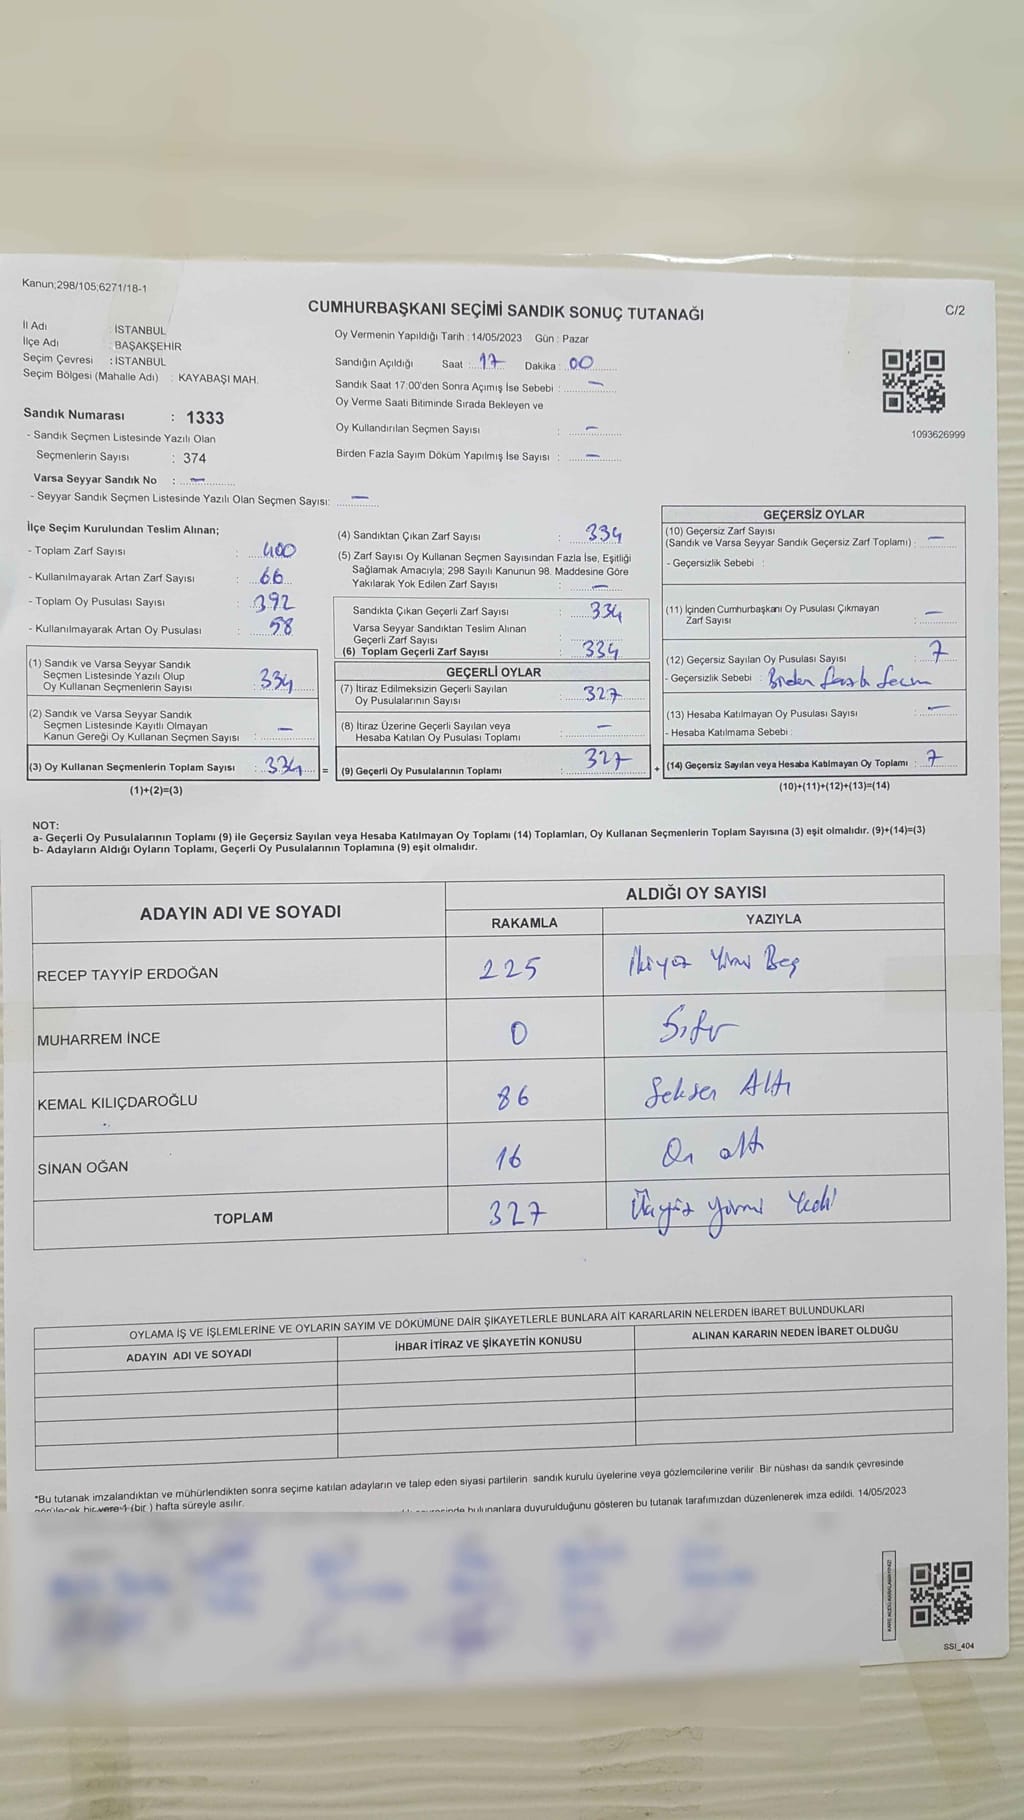 Kanun;298/105;6271/18-1
CUMHURBAŞKANI SEÇİMİ SANDIK SONUÇ TUTANAĞI
C/2
İl Adı : İSTANBUL
İlçe Adı : BAŞAKŞEHİR
Seçim Çevresi : İSTANBUL
Seçim Bölgesi (Mahalle Adı) : KAYABAŞI MAH.
Sandık Numarası : 1333
- Sandık Seçmen Listesinde Yazılı Olan
Seçmenlerin Sayısı : 374
Varsa Seyyar Sandık No : —
- Seyyar Sandık Seçmen Listesinde Yazılı Olan Seçmen Sayısı: —
Oy Vermenin Yapıldığı Tarih : 14/05/2023 Gün : Pazar
Sandığın Açıldığı Saat : 17 Dakika : 00
Sandık Saat 17:00'den Sonra Açımış İse Sebebi : —
Oy Verme Saati Bitiminde Sırada Bekleyen ve
Oy Kullandırılan Seçmen Sayısı : —
Birden Fazla Sayım Döküm Yapılmış İse Sayısı : —
1093626999
İlçe Seçim Kurulundan Teslim Alınan;
- Toplam Zarf Sayısı : 400
- Kullanılmayarak Artan Zarf Sayısı : 66
- Toplam Oy Pusulası Sayısı : 392
- Kullanılmayarak Artan Oy Pusulası : 58
(1) Sandık ve Varsa Seyyar Sandık
Seçmen Listesinde Yazılı Olup
Oy Kullanan Seçmenlerin Sayısı : 334
(2) Sandık ve Varsa Seyyar Sandık
Seçmen Listesinde Kayıtlı Olmayan
Kanun Gereği Oy Kullanan Seçmen Sayısı : —
(3) Oy Kullanan Seçmenlerin Toplam Sayısı : 334 =
(1)+(2)=(3)
(4) Sandıktan Çıkan Zarf Sayısı : 334
(5) Zarf Sayısı Oy Kullanan Seçmen Sayısından Fazla İse, Eşitliği
Sağlamak Amacıyla; 298 Sayılı Kanunun 98. Maddesine Göre
Yakılarak Yok Edilen Zarf Sayısı : —
Sandıkta Çıkan Geçerli Zarf Sayısı : 334
Varsa Seyyar Sandıktan Teslim Alınan
Geçerli Zarf Sayısı :
(6) Toplam Geçerli Zarf Sayısı : 334
GEÇERLİ OYLAR
(7) İtiraz Edilmeksizin Geçerli Sayılan
Oy Pusulalarının Sayısı : 327
(8) İtiraz Üzerine Geçerli Sayılan veya
Hesaba Katılan Oy Pusulası Toplamı : —
(9) Geçerli Oy Pusulalarının Toplamı : 327 +
GEÇERSİZ OYLAR
(10) Geçersiz Zarf Sayısı
(Sandık ve Varsa Seyyar Sandık Geçersiz Zarf Toplamı) : —
- Geçersizlik Sebebi :
(11) İçinden Cumhurbaşkanı Oy Pusulası Çıkmayan
Zarf Sayısı : —
(12) Geçersiz Sayılan Oy Pusulası Sayısı : 7
- Geçersizlik Sebebi : Birden fazla Secim
(13) Hesaba Katılmayan Oy Pusulası Sayısı : —
- Hesaba Katılmama Sebebi :
(14) Geçersiz Sayılan veya Hesaba Katılmayan Oy Toplamı : 7
(10)+(11)+(12)+(13)=(14)
NOT:
a- Geçerli Oy Pusulalarının Toplamı (9) ile Geçersiz Sayılan veya Hesaba Katılmayan Oy Toplamı (14) Toplamları, Oy Kullanan Seçmenlerin Toplam Sayısına (3) eşit olmalıdır. (9)+(14)=(3)
b- Adayların Aldığı Oyların Toplamı, Geçerli Oy Pusulalarının Toplamına (9) eşit olmalıdır.
ADAYIN ADI VE SOYADI
ALDIĞI OY SAYISI
RAKAMLA YAZIYLA
RECEP TAYYİP ERDOĞAN 225 İkiyüz Yirmi Beş
MUHARREM İNCE 0 Sıfır
KEMAL KILIÇDAROĞLU 86 Seksen Altı
SİNAN OĞAN 16 On altı
TOPLAM 327 Üçyüz yirmi Yedi
OYLAMA İŞ VE İŞLEMLERİNE VE OYLARIN SAYIM VE DÖKÜMÜNE DAİR ŞİKAYETLERLE BUNLARA AİT KARARLARIN NELERDEN İBARET BULUNDUKLARI
ADAYIN ADI VE SOYADI İHBAR İTİRAZ VE ŞİKAYETİN KONUSU ALINAN KARARIN NEDEN İBARET OLDUĞU
*Bu tutanak imzalandıktan ve mühürlendikten sonra seçime katılan adayların ve talep eden siyasi partilerin sandık kurulu üyelerine veya gözlemcilerine verilir. Bir nüshası da sandık çevresinde
görülecek bir yere 1 (bir ) hafta süreyle asılır.
bulunanlara duyurulduğunu gösteren bu tutanak tarafımızdan düzenlenerek imza edildi. 14/05/2023
SSI_404